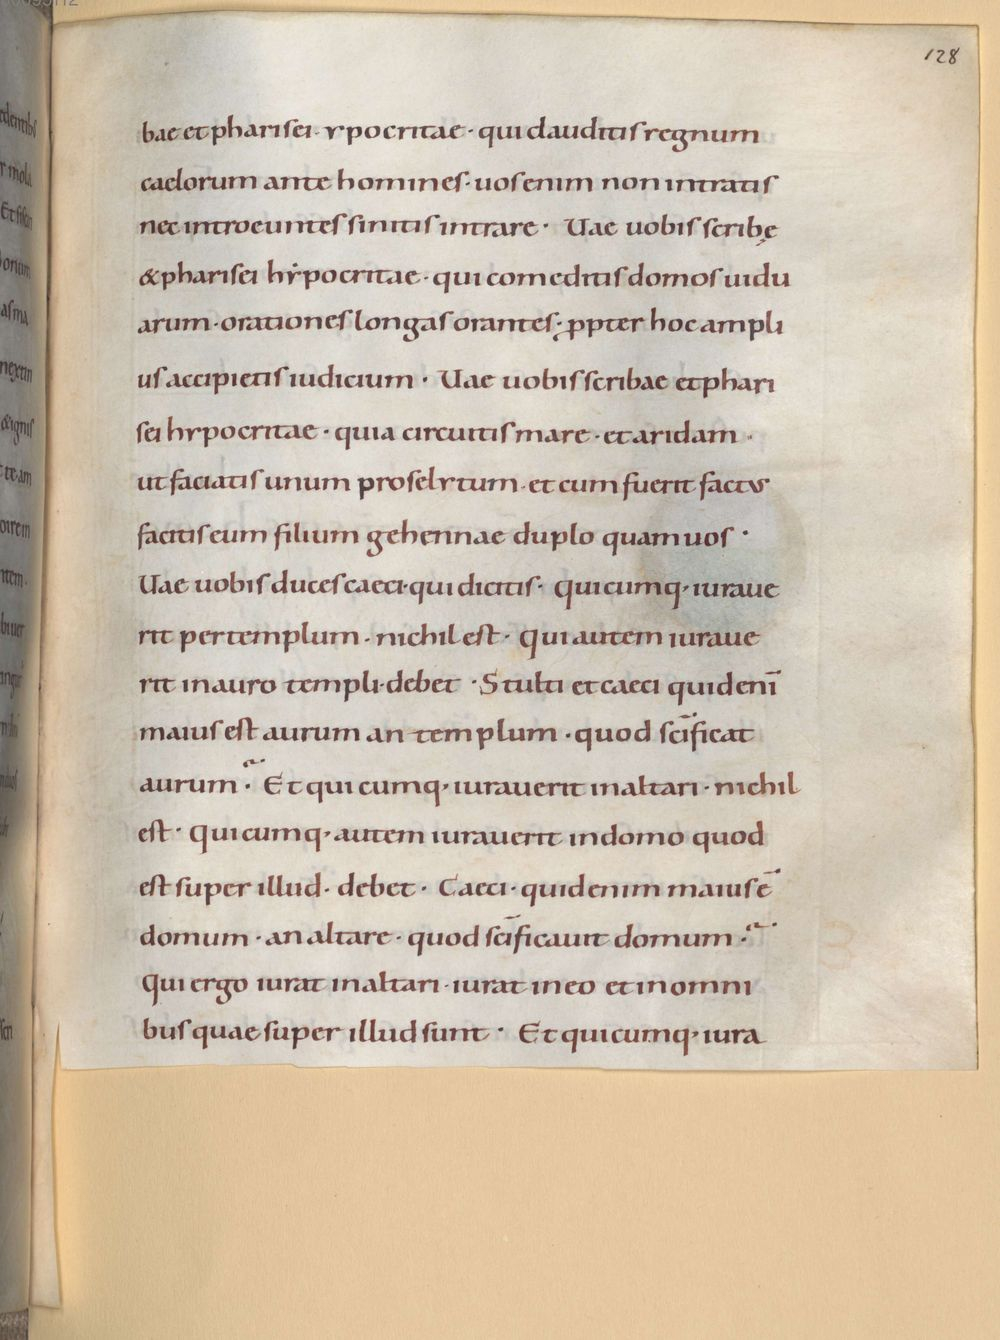 128
bae et pharisei · ypocritae · qui clauditis regnum
caelorum ante homines · uos enim non intratis
nec introeuntes sinitis intrare · Uae uobis scribę
& pharisei hẏpocritae · qui comeditis domos uidu
arum · orationes longas orantes · ꝓpter hoc ampli
us accipietis iudicium · Uae uobis scribae et phari
sei hypocritae · quia circuitis mare · et aridam ·
ut faciatis unum proselytum · et cum fuerit factus
facitis eum filium gehennae duplo quam uos ·
Uae uobis duces caeci · qui dicitis · Quicumq, iuraue
rit per templum · nichil est · qui autem iuraue
rit in auro templi · debet · Stulti et caeci quid enī
maius est aurum an templum · quod sc̄ificat
aurum · Et quicumq, iurauerit in altari · nichil
est · Quicumq, autem iurauerit in domo quod
est super illud · debet · Caeci · quid enim maius ē
domum · an altare · quod sc̄ificauit domum ·
Qui ergo iurat in altari · iurat in eo et in omni
bus quae super illud sunt · Et quicumq, iura